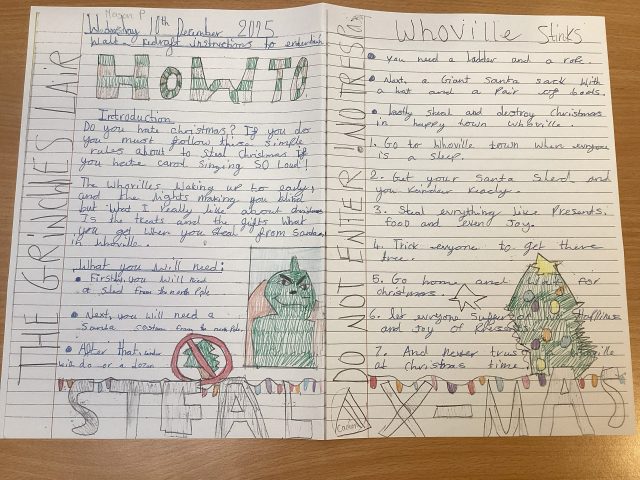 Megan P
Wednesday 10th December 2015
Walt - redraft instructions to entertain
HOW TO
THE GRINCHES LAIR
Introduction
Do you hate christmas? If you do
you must follow these simple
rules about to steal Christmas if
you hate carol singing SO Loud!
The whovilles waking up to early,
and the lights making you blind
but what I really like about christmas
Is the treats and the gifts what
you get when you steal from Santa
in whoville.
What you will need:
• Firstly, you will need
a sled from the north Pole
• Next, you will need a
Santa costum from the north Pole.
• After that,
will do or a dozen
STEAL
DO NOT ENTER! NO TRES
Whoville Stinks
• you need a ladder and a rope.
• Next, a Giant Santa sack with
a hat and a Pair of boots.
• Lastly steal and destroy Christmas
in happy town whoville.
1. Go to Whoville town when everyone
is a sleep.
2. Get your Santa Sled and
you Reindeer Ready.
3. Steal evrything like Presents,
food and even Joy.
4. Trick everyone to get there
tree.
5. Go home and for
christmas.
6. let everyone suffer
and joy of Presents.
7. And never trust a
at Christmas time.
X-MAS